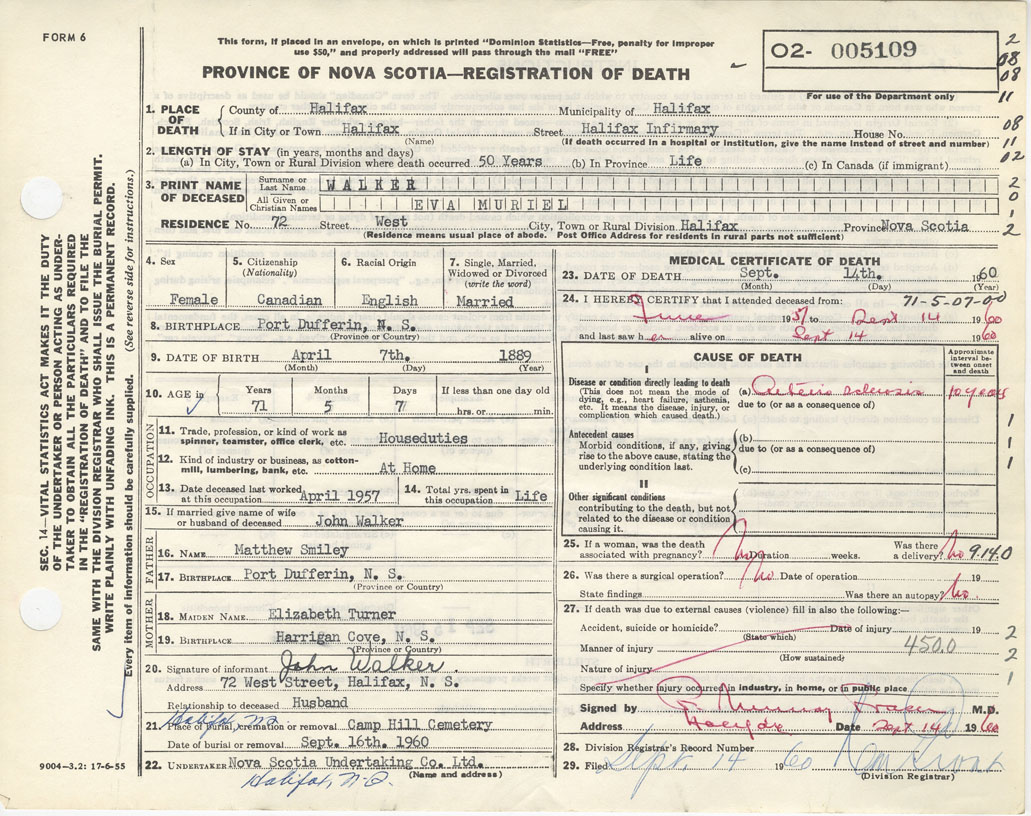 FORM 6
This form, if placed in an envelope, on which is printed "Dominion Statistics—Free, penalty for improper
use $50," and properly addressed will pass through the mail "FREE"
PROVINCE OF NOVA SCOTIA—REGISTRATION OF DEATH
02- 005109
For use of the Department only
2
08
08
11
08
11
02
2
0
1
2
1. PLACE OF DEATH
County of Halifax Municipality of Halifax
If in City or Town Halifax Street Halifax Infirmary House No.
(Name) (If death occurred in a hospital or institution, give the name instead of street and number)
2. LENGTH OF STAY (in years, months and days)
(a) In City, Town or Rural Division where death occurred 50 Years (b) In Province Life (c) In Canada (if immigrant)
3. PRINT NAME OF DECEASED
Surname or Last Name WALKER
All Given or Christian Names EVA MURIEL
RESIDENCE No. 72 Street West City, Town or Rural Division Halifax Province Nova Scotia
(Residence means usual place of abode. Post Office Address for residents in rural parts not sufficient)
4. Sex
Female
5. Citizenship
(Nationality)
Canadian
6. Racial Origin
English
7. Single, Married,
Widowed or Divorced
(write the word)
Married
8. BIRTHPLACE Port Dufferin, N. S.
(Province or Country)
9. DATE OF BIRTH April 7th. 1889
(Month) (Day) (Year)
10. AGE in
Years Months Days If less than one day old
71 5 7 hrs. or min.
OCCUPATION
11. Trade, profession, or kind of work as
spinner, teamster, office clerk, etc. Houseduties
12. Kind of industry or business, as cotton-
mill, lumbering, bank, etc. At Home
13. Date deceased last worked
at this occupation April 1957
14. Total yrs. spent in
this occupation Life
15. If married give name of wife
or husband of deceased John Walker
FATHER
16. NAME Matthew Smiley
17. BIRTHPLACE Port Dufferin, N. S.
(Province or Country)
MOTHER
18. MAIDEN NAME Elizabeth Turner
19. BIRTHPLACE Harrigan Cove, N. S.
(Province or Country)
20. Signature of informant John Walker
Address 72 West Street, Halifax, N. S.
Relationship to deceased Husband
Halifax, NS
21. Place of burial, cremation or removal Camp Hill Cemetery
Date of burial or removal Sept. 16th. 1960
22. UNDERTAKER Nova Scotia Undertaking Co. Ltd.
(Name and address)
Halifax, N.S.
9004—3.2: 17-6-55
MEDICAL CERTIFICATE OF DEATH
23. DATE OF DEATH Sept. 14th. 1960
(Month) (Day) (Year)
24. I HEREBY CERTIFY that I attended deceased from: 71-5-07-00
June 1957 to Sept 14 1960
and last saw her alive on Sept 14 1960
CAUSE OF DEATH
Approximate
interval between
onset
and death
I
Disease or condition directly leading to death
(This does not mean the mode of
dying, e.g., heart failure, asthenia,
etc. It means the disease, injury, or
complication which caused death.)
(a) Arterio sclerosis 10 years
due to (or as a consequence of)
Antecedent causes
Morbid conditions, if any, giving
rise to the above cause, stating the
underlying condition last.
(b)
due to (or as a consequence of)
(c)
1
1
1
II
Other significant conditions
contributing to the death, but not
related to the disease or condition
causing it.
25. If a woman, was the death
associated with pregnancy? No Duration weeks. Was there
a delivery? No 9.14.0
26. Was there a surgical operation? No Date of operation 19
State findings Was there an autopsy? No
27. If death was due to external causes (violence) fill in also the following:—
Accident, suicide or homicide? Date of injury 19
(State which)
Manner of injury 450.0
(How sustained)
Nature of injury
2
2
1
Specify whether injury occurred in industry, in home, or in public place
Signed by Murray Fraser M.D.
Address Halifax Date Sept 14 1960
28. Division Registrar's Record Number
29. Filed Sept. 14 1960
(Division Registrar)
SEC. 14—VITAL STATISTICS ACT MAKES IT THE DUTY
OF THE UNDERTAKER OR PERSON ACTING AS UNDER-
TAKER TO OBTAIN ALL THE PARTICULARS REQUIRED
IN THE "REGISTRATION OF DEATH" AND TO FILE THE
SAME WITH THE DIVISION REGISTRAR WHO SHALL ISSUE THE BURIAL PERMIT.
WRITE PLAINLY WITH UNFADING INK. THIS IS A PERMANENT RECORD.
Every item of information should be carefully supplied. (See reverse side for instructions.)